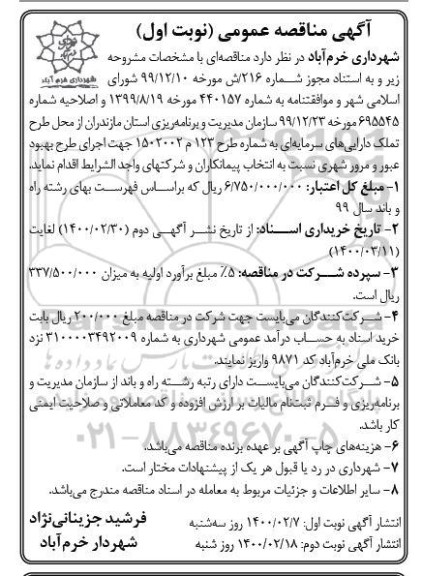 آگهی مناقصه عمومی (نوبت اول)
شهرداری خرم آباد
شهرداری خرم‌آباد در نظر دارد مناقصه‌ای با مشخصات مشروحه
زیر و به استناد مجوز شماره ۲۱۶/ش مورخه ۹۹/۱۲/۱۰ شورای
اسلامی شهر و موافقتنامه به شماره ۴۴۰۱۵۷ مورخه ۱۳۹۹/۸/۱۹ و اصلاحیه شماره
۶۹۵۵۴۵ مورخه ۹۹/۱۲/۲۳ سازمان مدیریت و برنامه‌ریزی استان مازندران از محل طرح
تملک دارایی‌های سرمایه‌ای به شماره طرح ۱۲۳ م ۱۵۰۲۰۰۲ جهت اجرای طرح بهبود
عبور و مرور شهری نسبت به انتخاب پیمانکاران و شرکتهای واجد الشرایط اقدام نماید.
۱- مبلغ کل اعتبار: ۶/۷۵۰/۰۰۰/۰۰۰ ریال که براساس فهرست بهای رشته راه
و باند سال ۹۹
۲- تاریخ خریداری اسناد: از تاریخ نشر آگهی دوم (۱۴۰۰/۰۲/۳۰) لغایت
(۱۴۰۰/۰۳/۱۱)
۳- سپرده شرکت در مناقصه: ۵٪ مبلغ برآورد اولیه به میزان ۳۳۷/۵۰۰/۰۰۰
ریال است.
۴- شرکت‌کنندگان می‌بایست جهت شرکت در مناقصه مبلغ ۲۰۰/۰۰۰ ریال بابت
خرید اسناد به حساب درآمد عمومی شهرداری به شماره ۳۱۰۰۰۰۳۴۹۲۰۰۹ نزد
بانک ملی خرم‌آباد کد ۹۸۷۱ واریز نمایند.
۵- شرکت‌کنندگان می‌بایست دارای رتبه رشته راه و باند از سازمان مدیریت و
برنامه‌ریزی و فرم ثبت‌نام مالیات بر ارزش افزوده و کد معاملاتی و صلاحیت ایمنی
کار باشد.
۶- هزینه‌های چاپ آگهی بر عهده برنده مناقصه می‌باشد.
۷- شهرداری در رد یا قبول هر یک از پیشنهادات مختار است.
۸- سایر اطلاعات و جزئیات مربوط به معامله در اسناد مناقصه مندرج می‌باشد.
انتشار آگهی نوبت اول: ۱۴۰۰/۰۲/۷ روز سه‌شنبه
انتشار آگهی نوبت دوم: ۱۴۰۰/۰۲/۱۸ روز شنبه
فرشید جزینانی‌نژاد
شهردار خرم‌آباد
۰۲۱-۸۸۳۴۹۶۷۰-۵